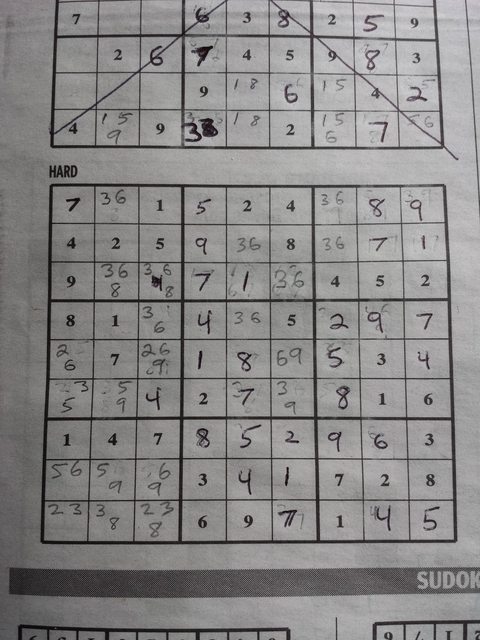 7 6 3 8 2 5 9
2 6 7 4 5 9 8 3
9 1 8 6 1 5 4 2
4 1 5 9 9 3 1 8 2 1 5 6 7 5 6
HARD
7 3 6 1 5 2 4 3 6 8 9
4 2 5 9 3 6 8 3 6 7 1
9 3 6 8 3 6 8 7 1 3 6 4 5 2
8 1 3 6 4 3 6 5 2 9 7
2 6 7 2 6 9 1 8 6 9 5 3 4
3 5 5 9 4 2 7 3 9 8 1 6
1 4 7 8 5 2 9 6 3
5 6 5 9 6 9 3 4 1 7 2 8
2 3 3 8 2 3 8 6 9 7 1 4 5
SUDOK